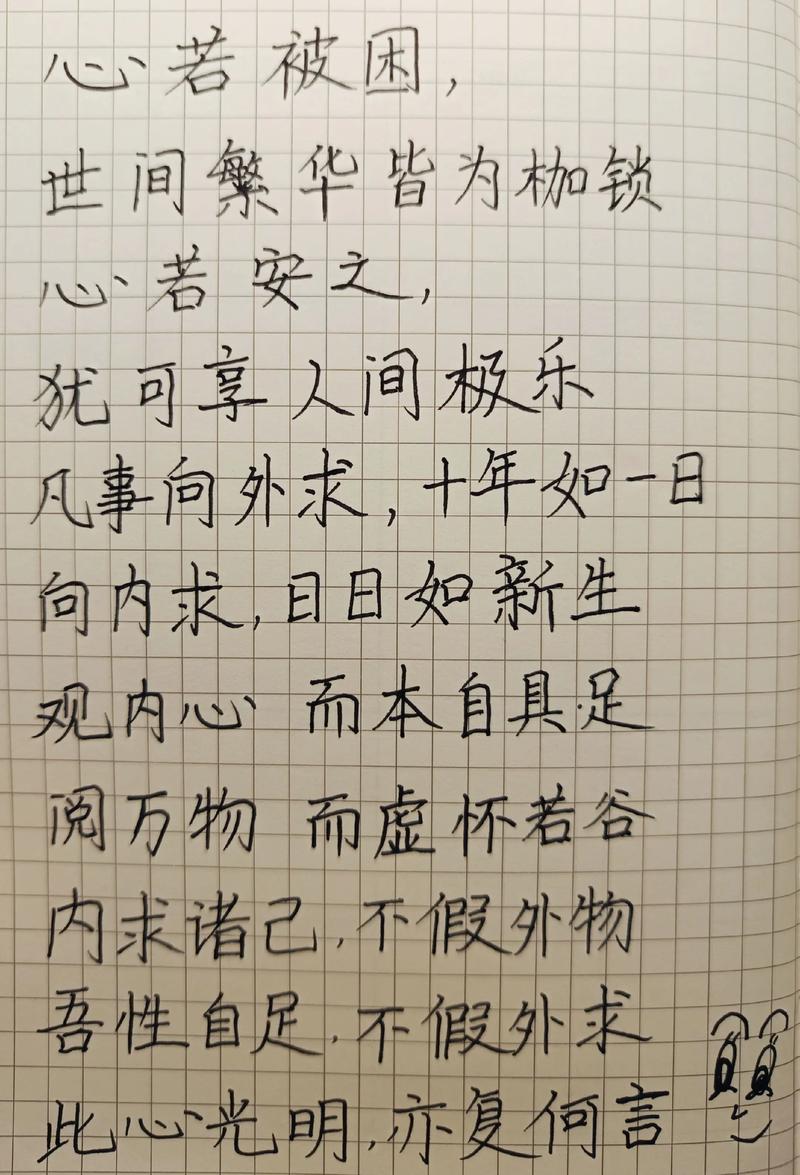 心若被困，
世间繁华皆为枷锁
心若安之，
犹可享人间极乐
凡事向外求，十年如一日
向内求，日日如新生
观内心 而本自具足
阅万物 而虚怀若谷
内求诸己，不假外物
吾性自足，不假外求
此心光明，亦复何言